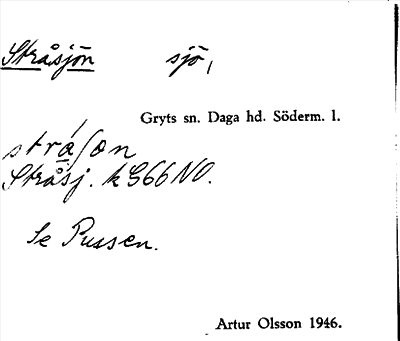 Stråsjön sjö,
Gryts sn. Daga hd. Söderm. l.
strá̱ʃon
Stråsj. k G66 NO.
Se Pussen.
Artur Olsson 1946.